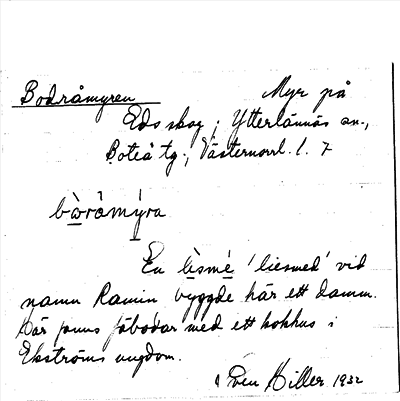 Bodråmyren Myr på
Eds skog; Ytterlännäs sn.,
Boteå tg., Västernorrl. l. 7
bòråmýra
En lìsmé 'liesmed' vid
namn Ramin byggde här ett damm.
Där funns fäbodar med ett kokhus i
Ekströms ungdom.
Sven Hiller 1932